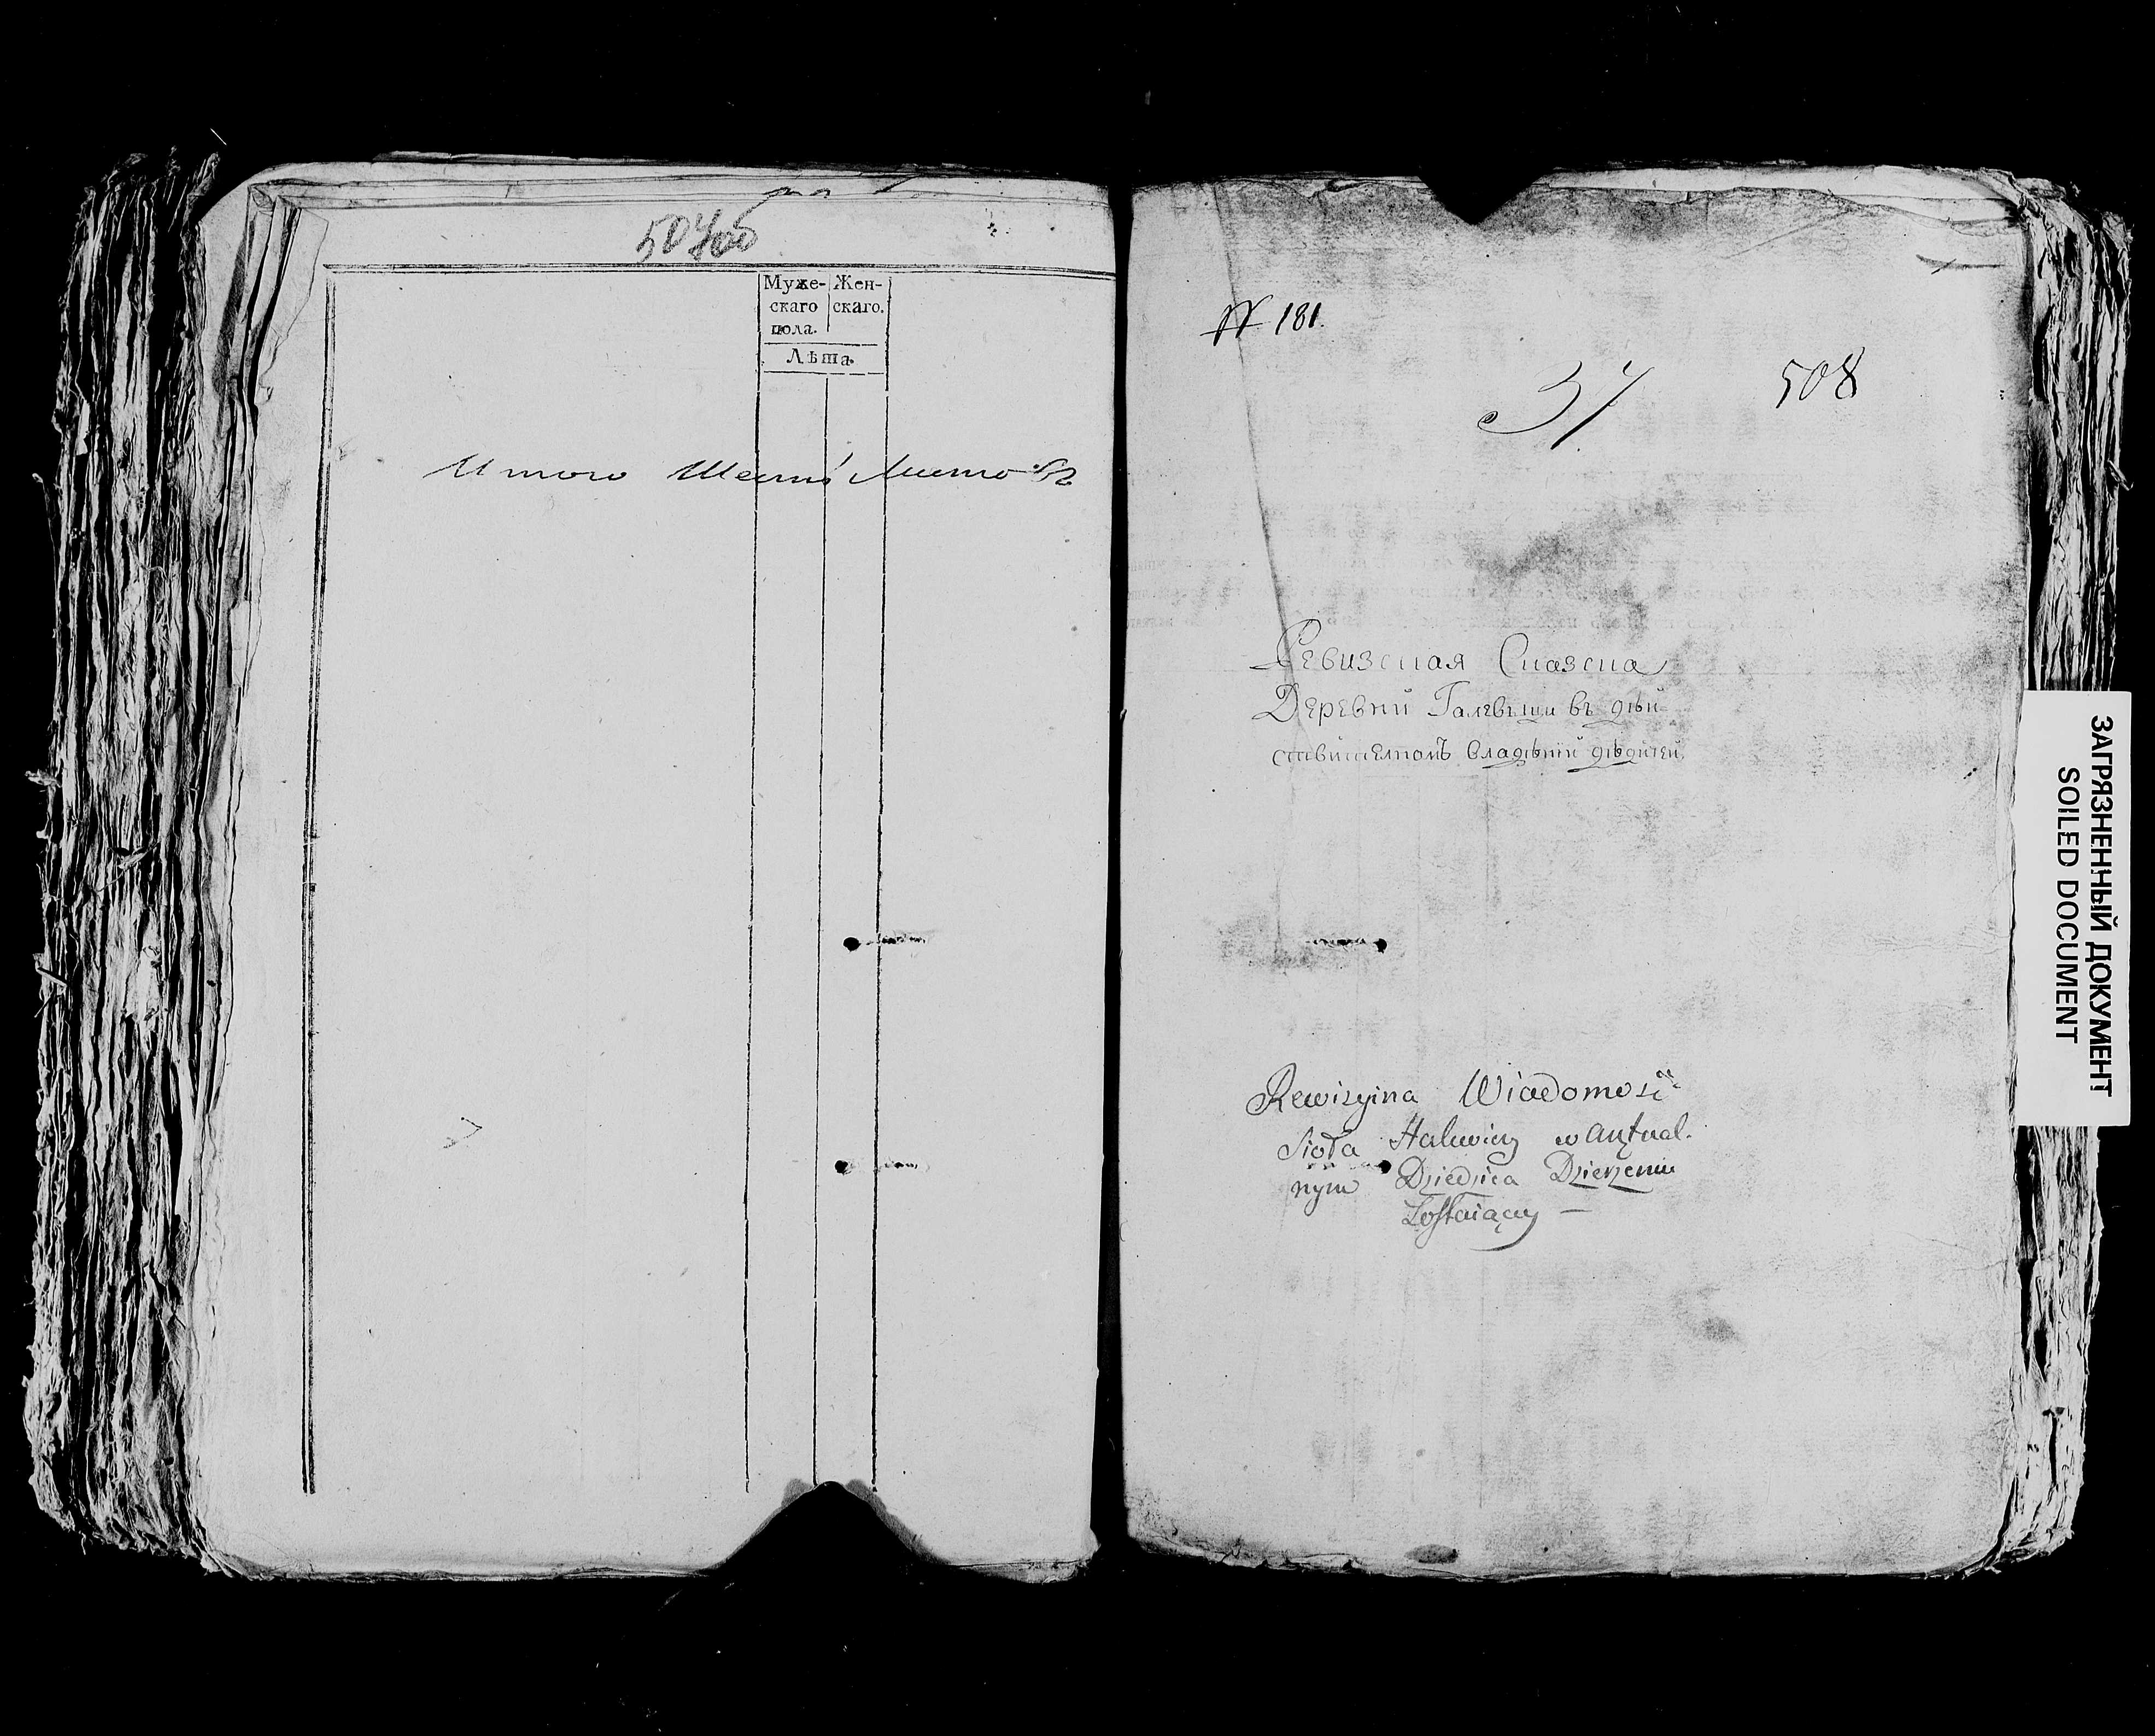 507об
Муже-
скаго
пола.
Жен-
скаго.
Лѣта.
Итого Шесть Листовъ
N 181.
37
508
Ревизская Сказка
Деревни Галевичи въ дѣй-
ствителномъ владѣнiи
Rewizyina Wiadomość
Sioła Halewicz w Aktual-
nym Dziedzica Dzierzeniu
Zostaiący —
ЗАГРЯЗНЕННЫЙ ДОКУМЕНТ
SOILED DOCUMENT